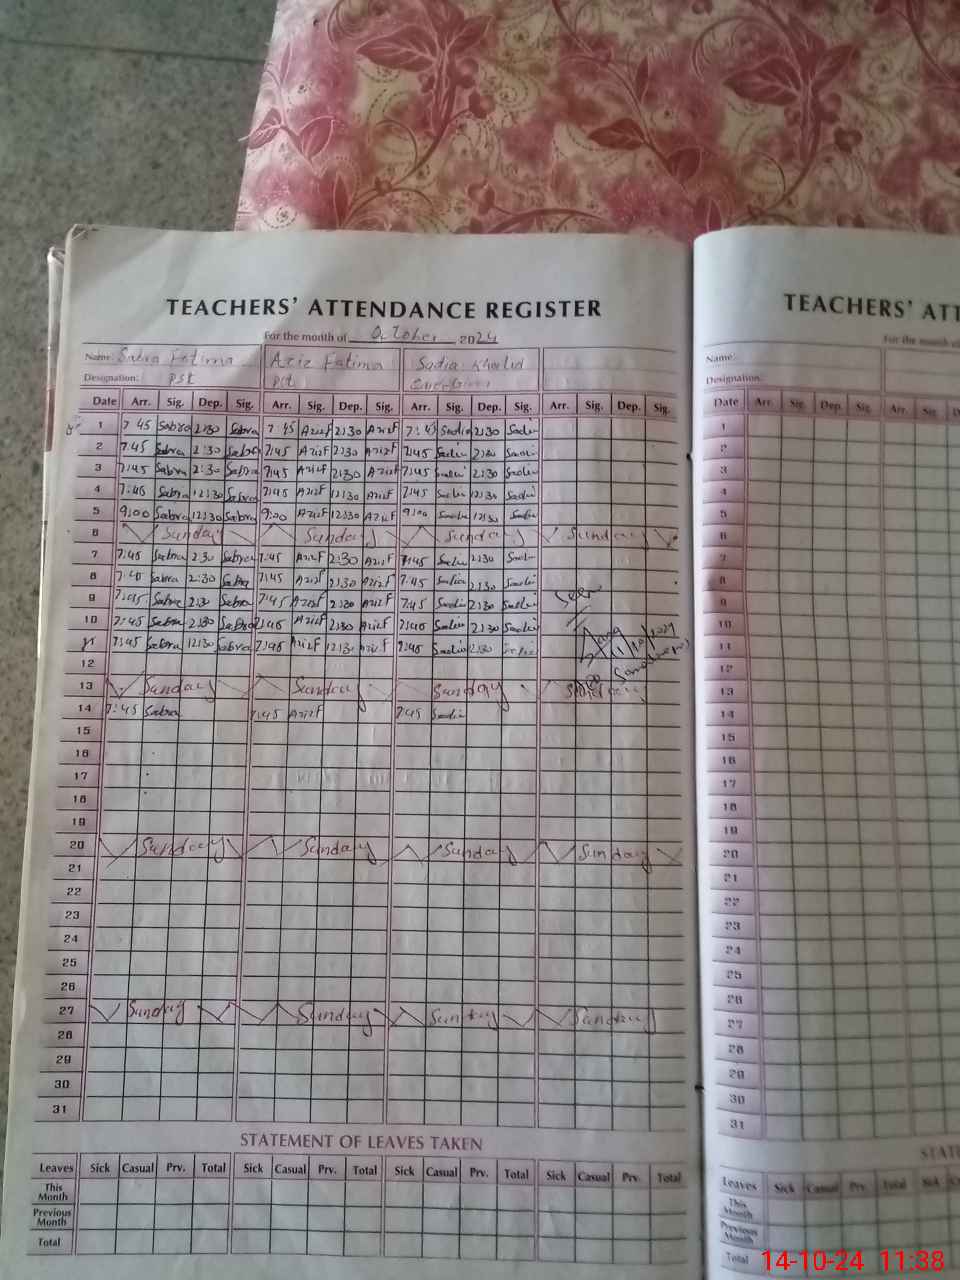 TEACHERS' ATTENDANCE REGISTER
For the month of October 2024
Name: Sabra Fatima Aziz Fatima Sadia Khalid
Designation: PST PST
Date Arr. Sig. Dep. Sig. Arr. Sig. Dep. Sig. Arr. Sig. Dep. Sig. Arr. Sig. Dep. Sig.
1 7:45 Sabra 2:30 Sabra 7:45 AzizF 2:30 AzizF 7:45 Sadia 2:30 Sadia
2 7:45 Sabra 2:30 Sabra 7:45 AzizF 2:30 AzizF 7:45 Sadia 2:30 Sadia
3 7:45 Sabra 2:30 Sabra 7:45 AzizF 2:30 AzizF 7:45 Sadia 2:30 Sadia
4 7:45 Sabra 12:30 Sabra 7:45 AzizF 12:30 AzizF 7:45 Sadia 12:30 Sadia
5 9:00 Sabra 12:30 Sabra 9:00 AzizF 12:30 AzizF 9:00 Sadia 12:30 Sadia
6 Sunday Sunday Sunday Sunday
7 7:45 Sabra 2:30 Sabra 7:45 AzizF 2:30 AzizF 7:45 Sadia 2:30 Sadia
8 7:45 Sabra 2:30 Sabra 7:45 AzizF 2:30 AzizF 7:45 Sadia 2:30 Sadia
9 7:45 Sabra 2:30 Sabra 7:45 AzizF 2:30 AzizF 7:45 Sadia 2:30 Sadia
Seen
10 7:45 Sabra 2:30 Sabra 7:45 AzizF 2:30 AzizF 7:45 Sadia 2:30 Sadia
11 7:45 Sabra 12:30 Sabra 7:45 AzizF 12:30 AzizF 7:45 Sadia 2:30
11/10/2024
12
13 Sunday Sunday Sunday Sunday
14 7:45 Sabra 7:45 AzizF 7:45 Sadia
15
16
17
18
19
20 Sunday Sunday Sunday Sunday
21
22
23
24
25
26
27 Sunday Sunday Sunday Sunday
28
29
30
31
STATEMENT OF LEAVES TAKEN
Leaves Sick Casual Prv. Total Sick Casual Prv. Total Sick Casual Prv. Total Sick Casual Prv. Total
This Month
Previous Month
Total
TEACHERS' ATT
For the month of
Name:
Designation:
Date Arr. Sig. Dep. Sig. Arr. Sig. D
1
2
3
4
5
6
7
8
9
10
11
12
13
14
15
16
17
18
19
20
21
22
23
24
25
26
27
28
29
30
31
STATE
Leaves Sick Casual Prv. Total Sick
This Month
Previous Month
Total
14-10-24 11:38